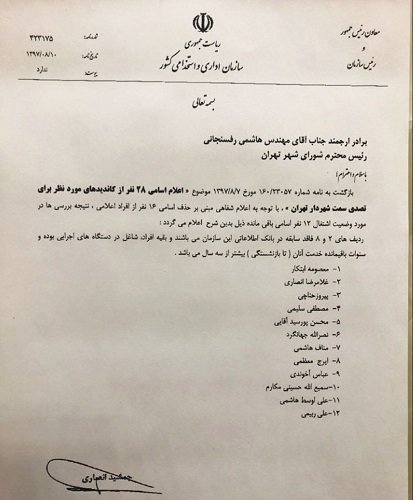 شماره: ۴۲۳۱۷۵
تاریخ نامه: ۱۳۹۷/۰۸/۱۰
پیوست: ندارد
ریاست جمهوری
سازمان اداری و استخدامی کشور
معاون رئیس جمهور
و
رئیس سازمان
بسمه تعالی
برادر ارجمند جناب آقای مهندس هاشمی رفسنجانی
رئیس محترم شورای شهر تهران
با سلام و احترام؛
بازگشت به نامه شماره ۱۶۰/۲۳۰۵۷ مورخ ۱۳۹۷/۸/۷ موضوع « اعلام اسامی ۲۸ نفر از کاندیدهای مورد نظر برای
تصدی سمت شهردار تهران » ، با توجه به اعلام شفاهی مبنی بر حذف اسامی ۱۶ نفر از افراد اعلامی ، نتیجه بررسی ها در
مورد وضعیت اشتغال ۱۲ نفر اسامی باقی مانده ذیل بدین شرح اعلام می گردد :
ردیف های ۲ و ۸ فاقد سابقه در بانک اطلاعاتی این سازمان می باشند و بقیه افراد، شاغل در دستگاه های اجرایی بوده و
سنوات باقیمانده خدمت آنان ( تا بازنشستگی ) بیشتر از سه سال می باشد .
۱- معصومه ابتکار
۲- غلامرضا انصاری
۳- پیروز حناچی
۴- مصطفی سلیمی
۵- محسن پورسید آقایی
۶- نصرالله جهانگرد
۷- مناف هاشمی
۸- ایرج معظمی
۹- عباس آخوندی
۱۰- سمیع الله حسینی مکارم
۱۱- علی اوسط هاشمی
۱۲- علی ربیعی
جمشید انصاری